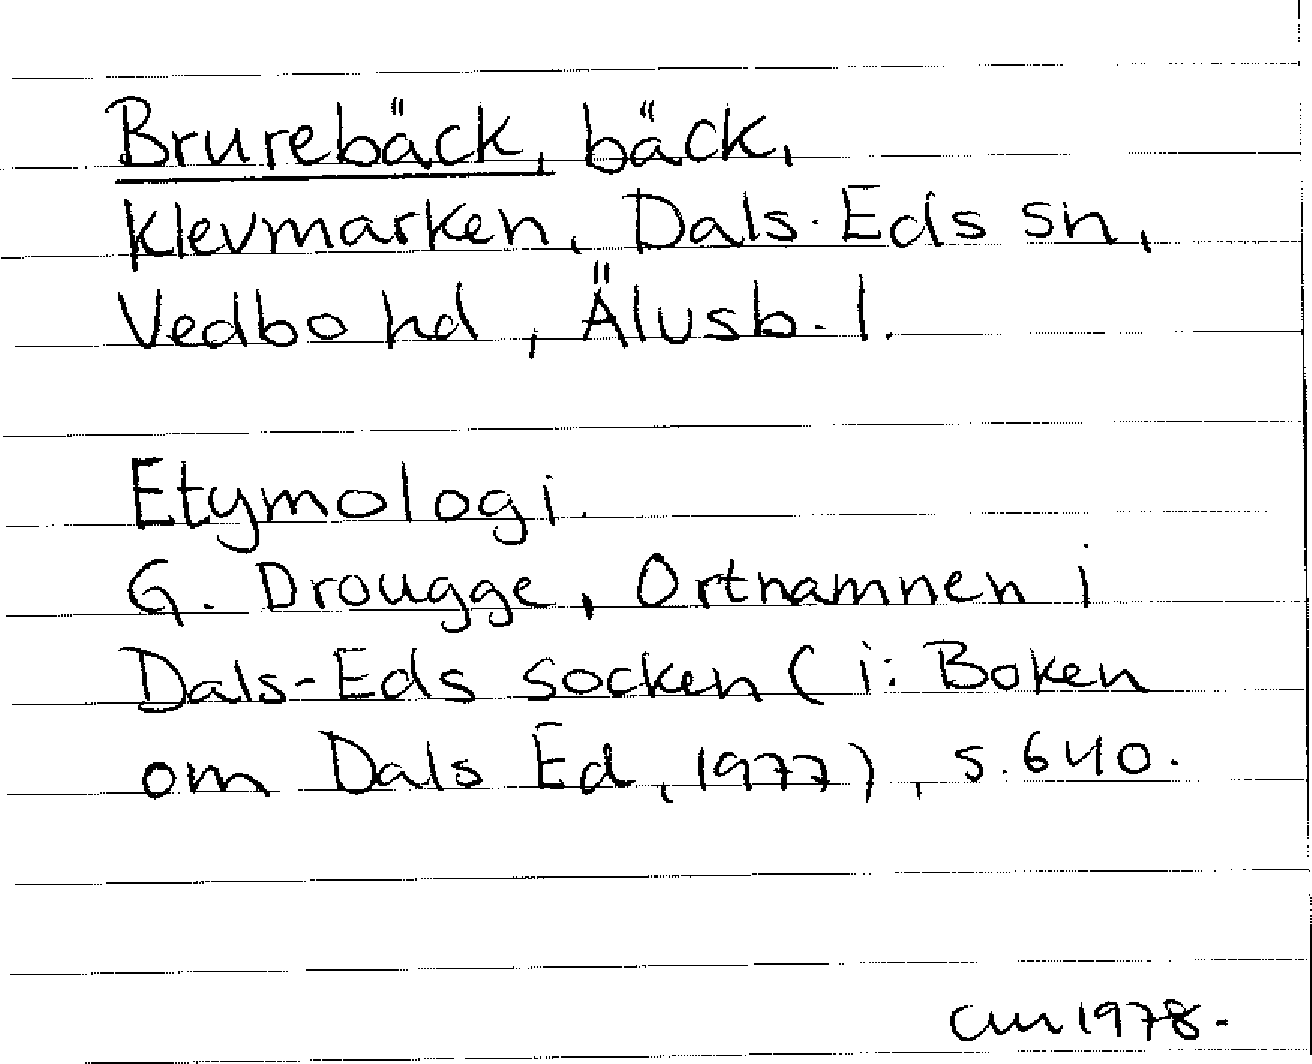 Brurebäck, bäck,
Klevmarken, Dals-Eds sn,
Vedbo hd, Älvsb. l.
Etymologi.
G. Drougge, Ortnamnen i
Dals-Eds socken (i: Boken
om Dals Ed, 1977), s. 640.
1978.